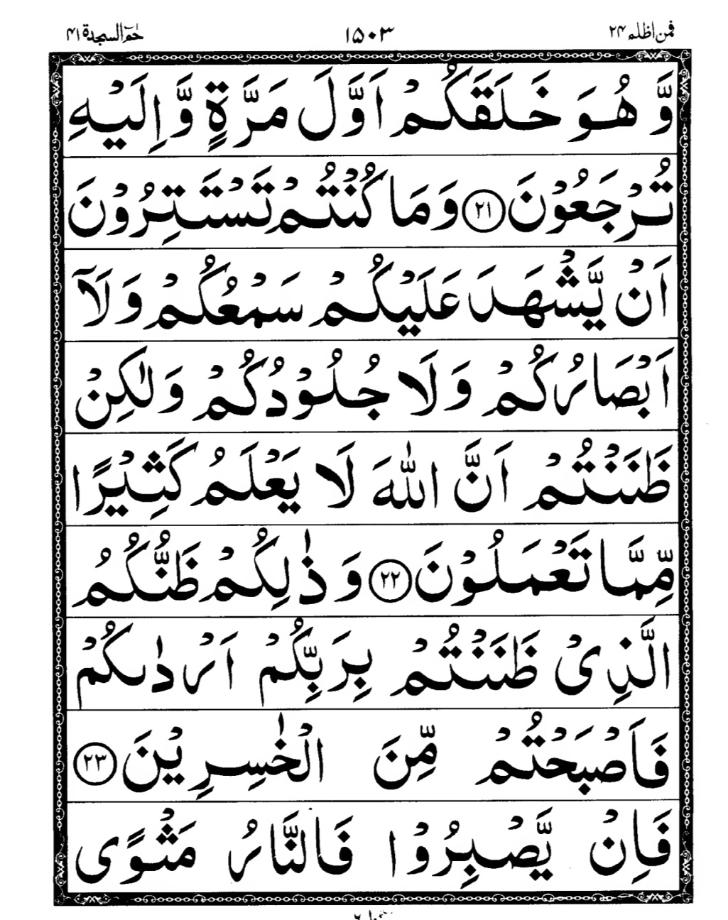 فمن اظلم ۲۴ ۱۵۰۳ حٰمٓ السجدة ۴۱
وَّ هُوَ خَلَقَكُمْ اَوَّلَ مَرَّةٍ وَّاِلَيْهِ
تُرْجَعُوْنَ ﴿۲۱﴾ وَمَا كُنْتُمْ تَسْتَتِرُوْنَ
اَنْ يَّشْهَدَ عَلَيْكُمْ سَمْعُكُمْ وَلَاۤ
اَبْصَارُكُمْ وَلَا جُلُوْدُكُمْ وَلٰكِنْ
ظَنَنْتُمْ اَنَّ اللّٰهَ لَا يَعْلَمُ كَثِيْرًا
مِّمَّا تَعْمَلُوْنَ ﴿۲۲﴾ وَ ذٰلِكُمْ ظَنُّكُمُ
الَّذِىْ ظَنَنْتُمْ بِرَبِّكُمْ اَرْدٰىكُمْ
فَاَصْبَحْتُمْ مِّنَ الْخٰسِرِيْنَ ﴿۲۳﴾
فَاِنْ يَّصْبِرُوْا فَالنَّارُ مَثْوًى